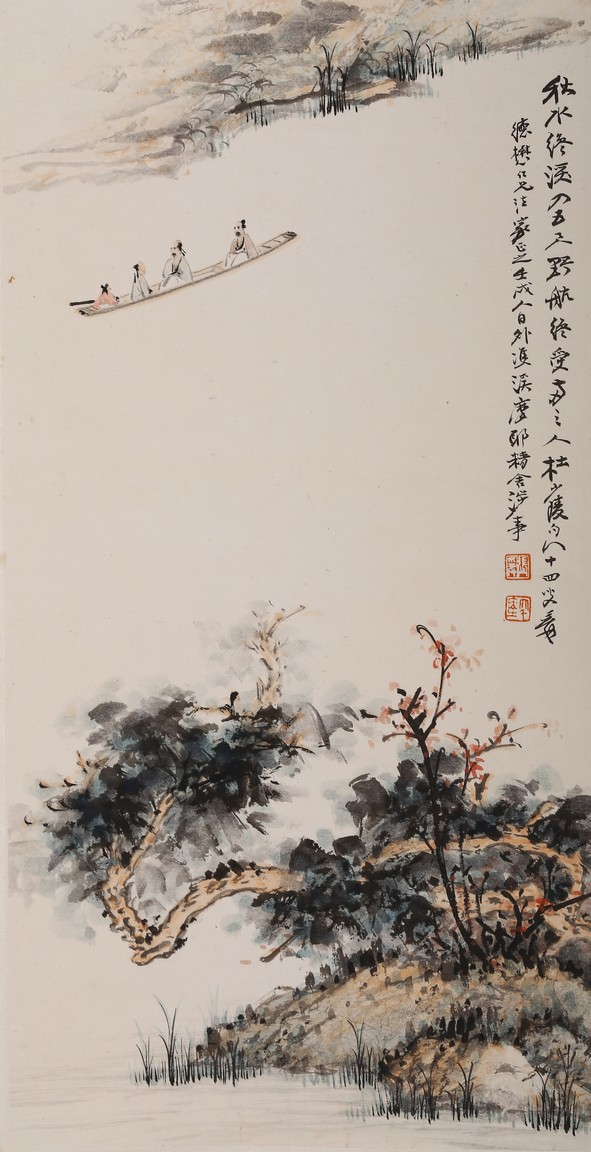 秋水終深四五尺野航終受兩三人杜少陵句八十四叟爰
德樊仁兄法家正之壬戌人日外雙溪摩耶精舍涉事